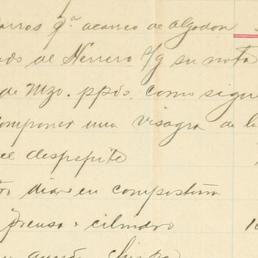 carros pª acarreo de algodon
de Herrero c/g su nota
de Mzo. ppdo. como sigue
componer una visagra de l
despepite
dias en compostura
prensa + cilindro